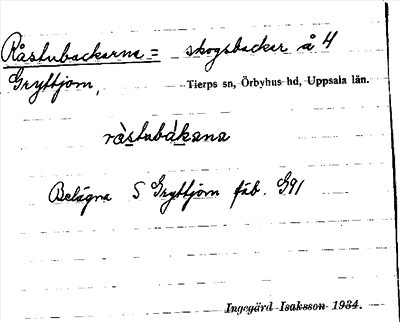 Råstubackarna = skogsbackar å 4
Gryttjom, Tierps sn, Örbyhus hd, Uppsala län.
rås̀tubàkana
Belägna S Gryttjom fäb. G91
Ingegärd Isaksson 1934.